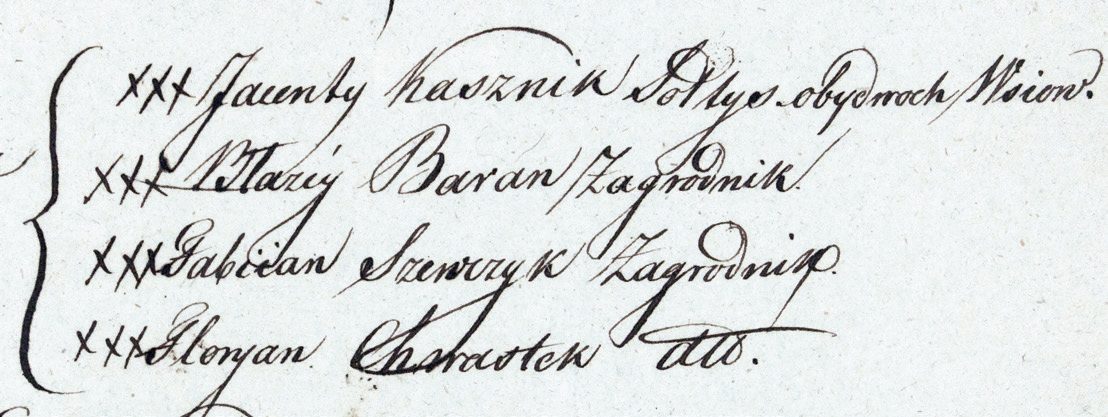 xxx Jacenty Kasznik Sołtys obydwoch Wsiow.
xxx Błaziy Baran Zagrodnik.
xxx Fabiian Szewczyk Zagrodnik.
xxx Floryan Chwastek dtto.